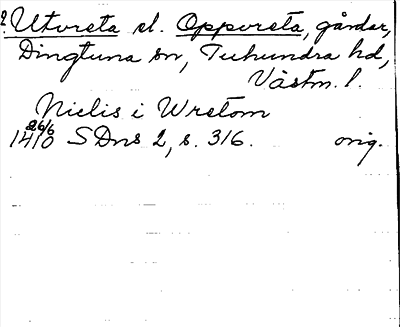 ? Utvreta el. Oppvreta, gårdar,
Dingtuna sn, Tuhundra hd,
Västm. l.
Nielis i Wretom
26/6
1410 SDns 2, s. 316. orig.